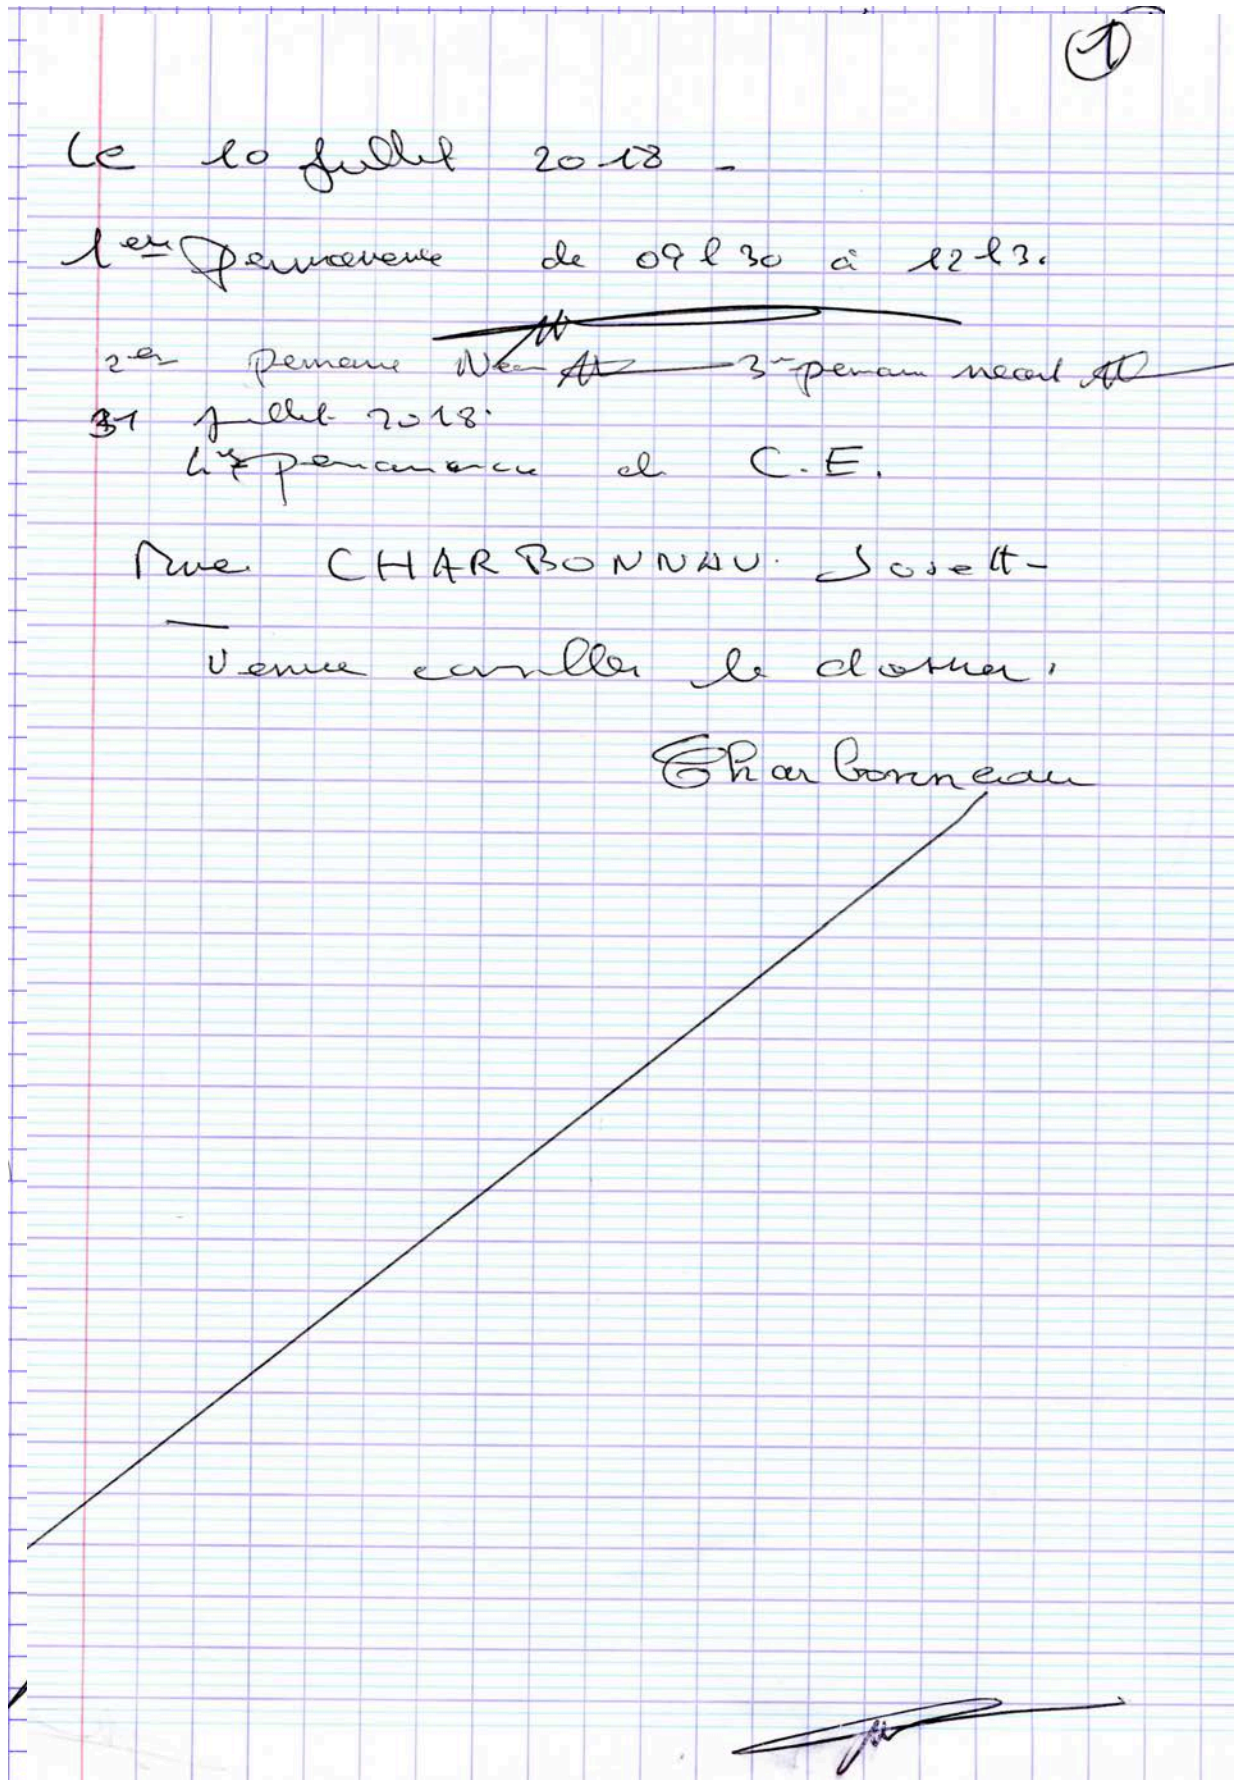 ①
Le 10 Juillet 2018 -
1ere Permanence de 09h30 à 12h30
2em permane Néant 3em perman neant
31 Juillet 2018.
4em permanence du C.E.
Mme CHARBONNAU. Josett-
Venue consulter le dossier.
Charbonneau